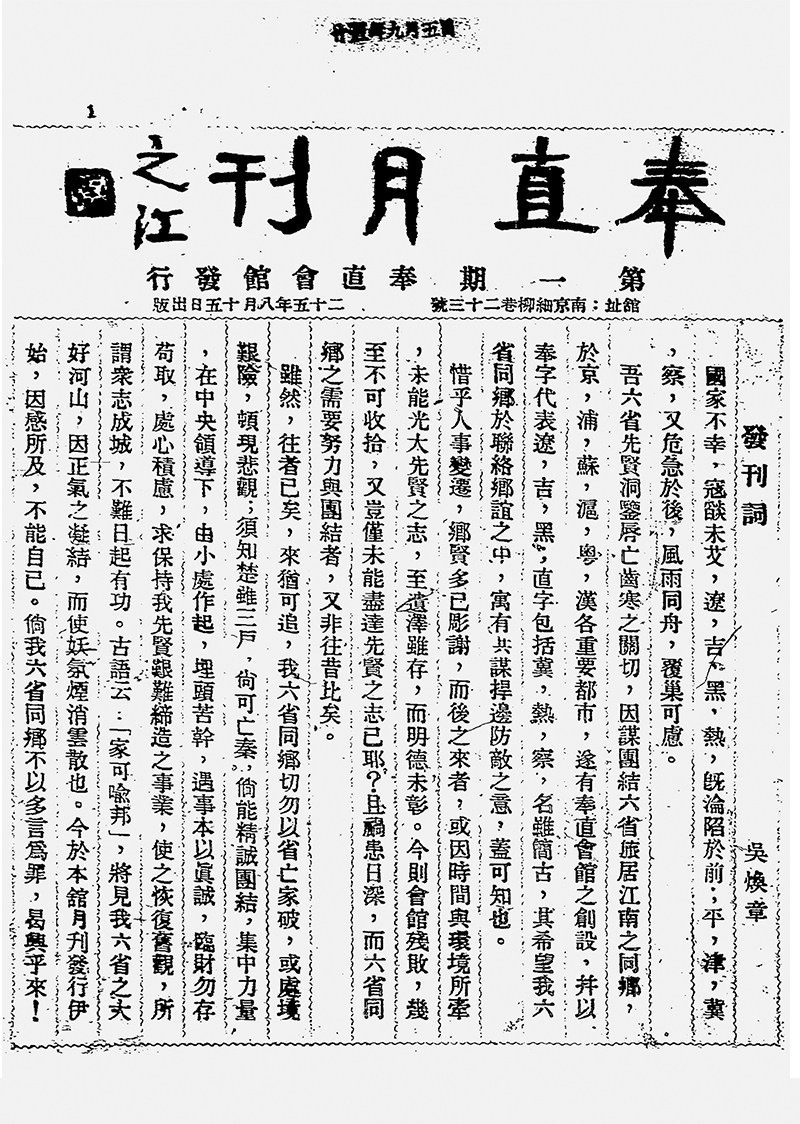 1
奉直月刊
之江
第一期 奉直會館發行
館址；南京細柳巷二十三號 二十五年八月十五日出版
發刊詞 吳煥章
國家不幸，寇燄未艾，遼，吉，黑，熱，既淪陷於前；平，津，冀
，察，又危急於後，風雨同舟，覆巢可慮。
吾六省先賢洞鑒唇亡齒寒之關切，因謀團結六省旅居江南之同鄉，
於京，浦，蘇，滬，粵，漢各重要都市，遂有奉直會館之創設，幷以
奉字代表遼，吉，黑，直字包括冀，熱，察，名雖簡古，其希望我六
省同鄉於聯絡鄉誼之中，寓有共謀捍邊防敵之意，蓋可知也。
惜乎人事變遷，鄉賢多已彫謝，而後之來者，或因時間與環境所牽
，未能光大先賢之志，至遺澤雖存，而明德未彰。今則會館殘敗，幾
至不可收拾，又豈僅未能盡達先賢之志已耶？且禍患日深，而六省同
鄉之需要努力與團結者，又非往昔比矣。
雖然，往者已矣，來猶可追，我六省同鄉切勿以省亡家破，或處境
艱險，頓現悲觀；須知楚雖三戶，尙可亡秦，倘能精誠團結，集中力量
，在中央領導下，由小處作起，埋頭苦幹，遇事本以眞誠，臨財勿存
苟取，處心積慮，求保持我先賢艱難締造之事業，使之恢復舊觀，所
謂衆志成城，不難日起有功。古語云：「家可喩邦」，將見我六省之大
好河山，因正氣之凝結，而使妖氛煙消雲散也。今於本館月刊發行伊
始，因感所及，不能自已。倘我六省同鄉不以多言爲罪，曷興乎來！